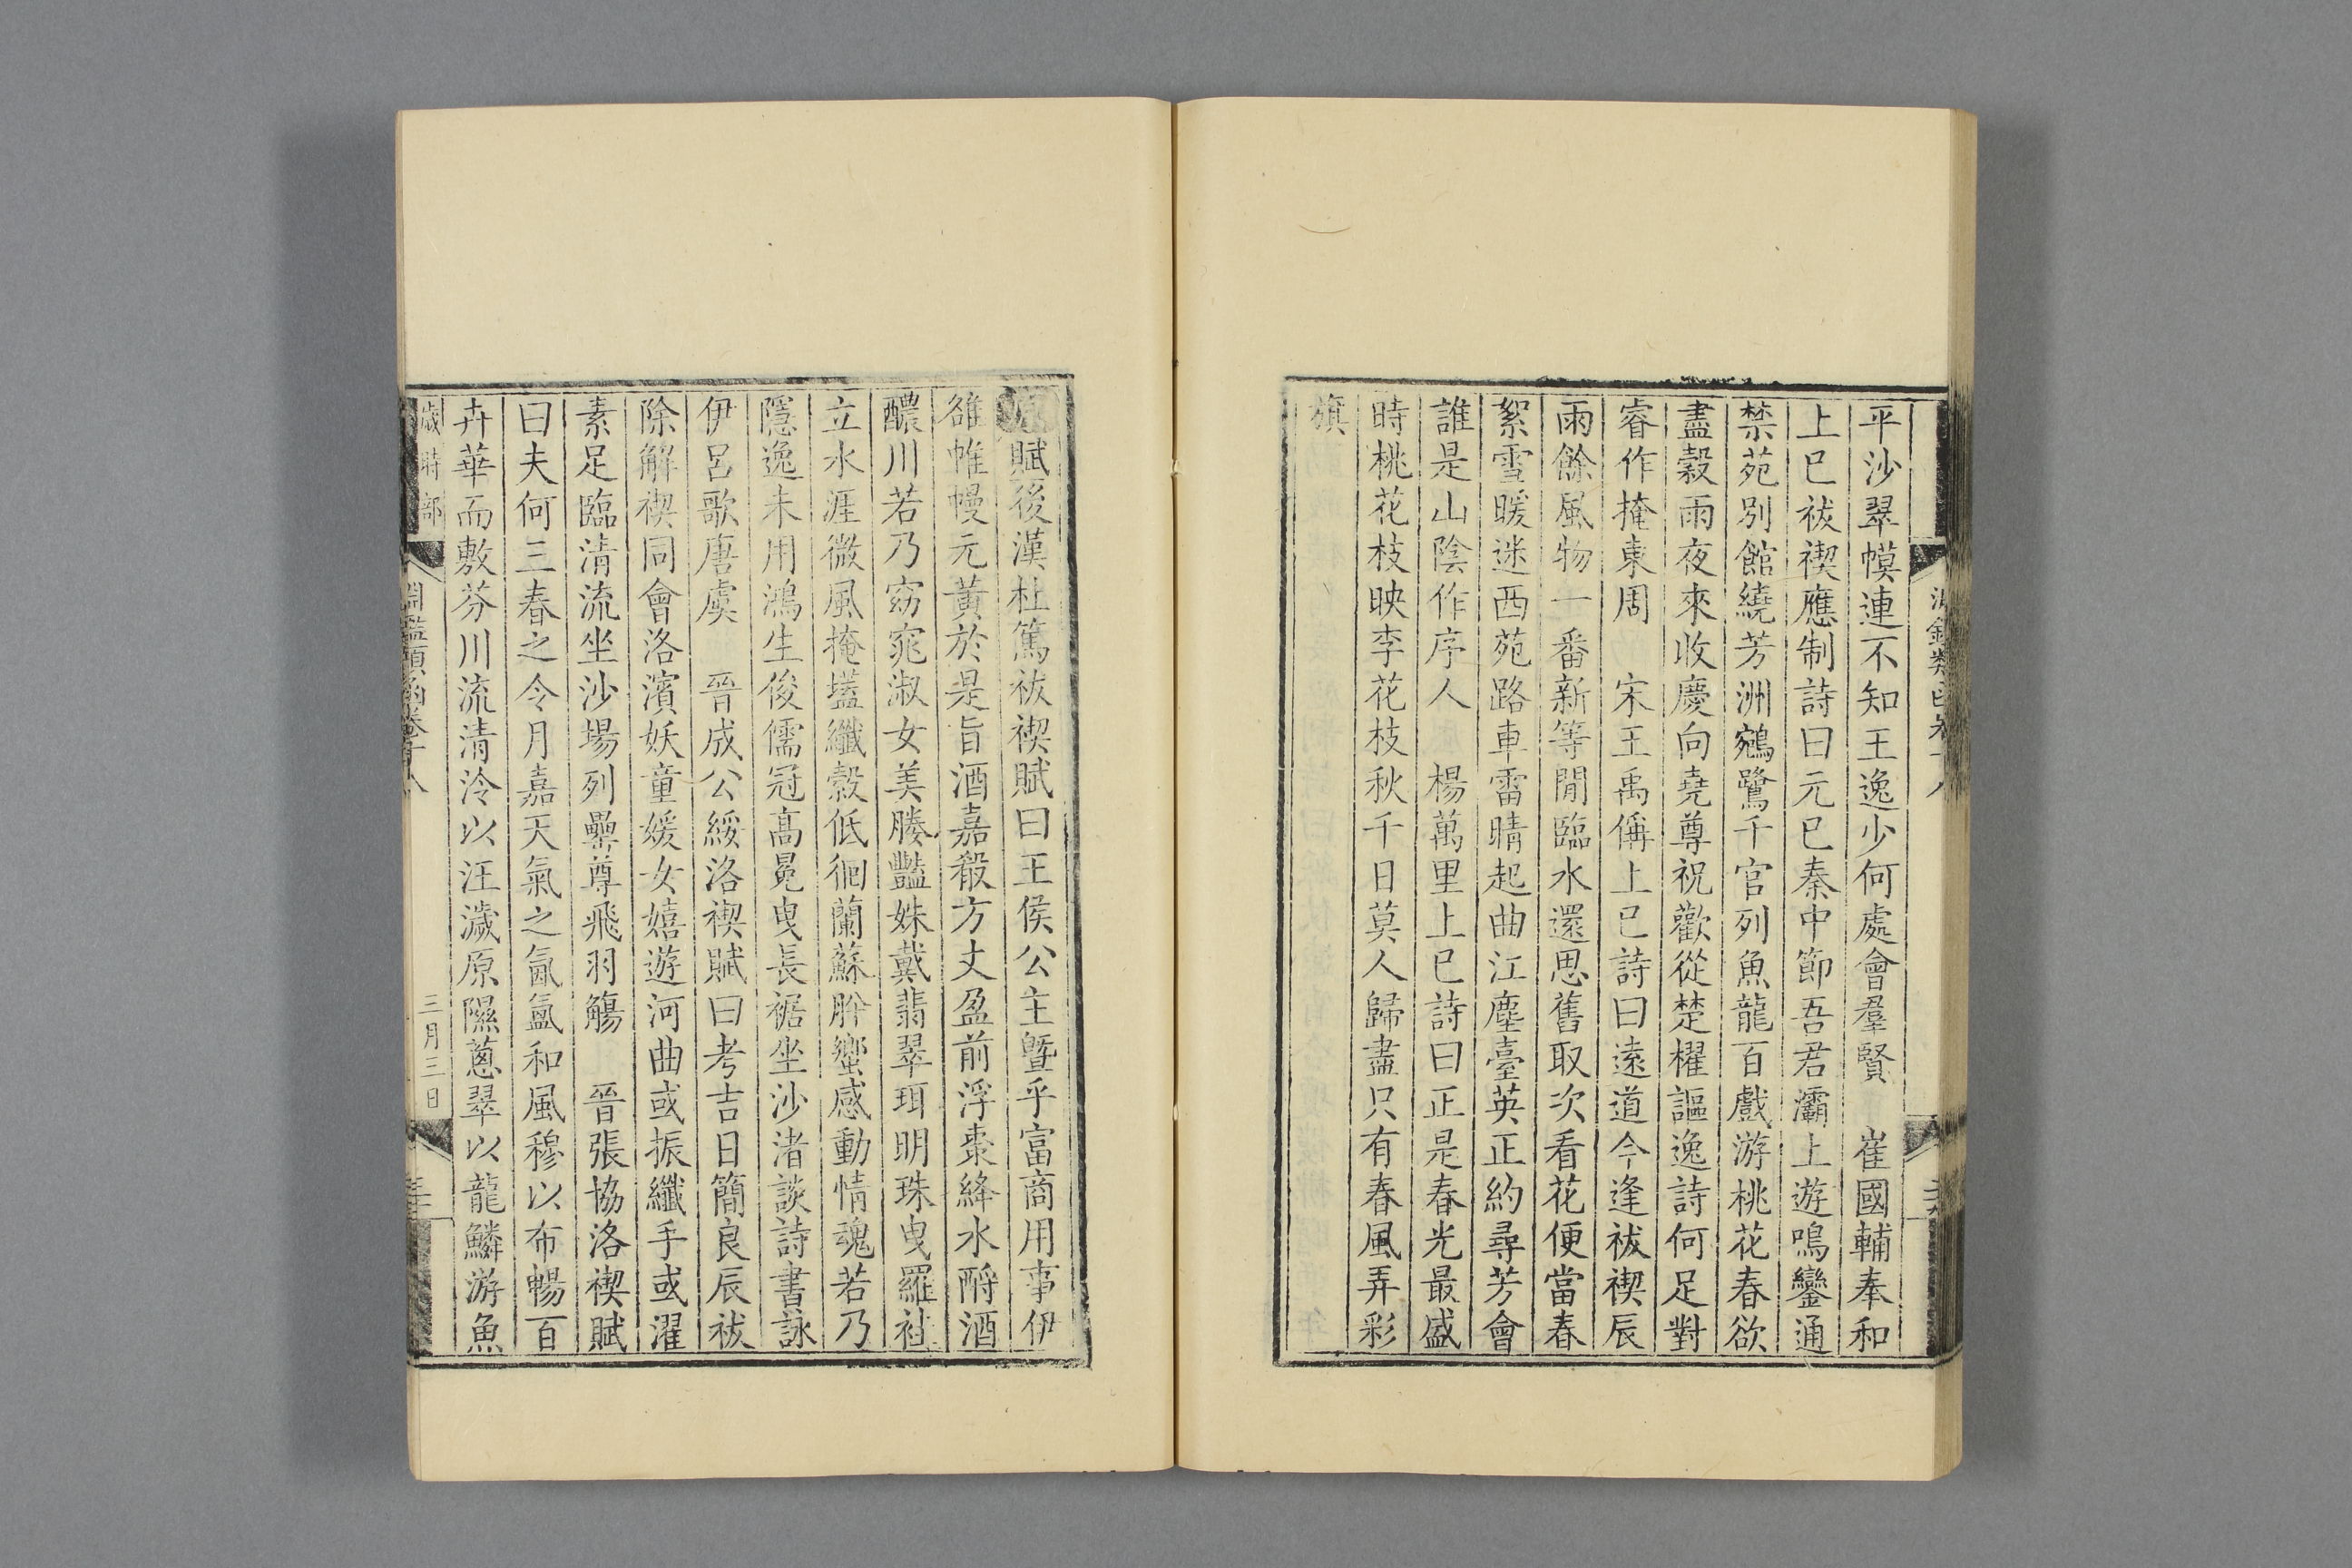 平沙翠幙連不知王逸少何處會羣賢　崔國輔奉和
上巳祓禊應制詩曰元巳秦中節吾君灞上遊鳴鑾通
禁苑別館繞芳洲鵷鷺千官列魚龍百戲游桃花春欲
盡穀雨夜來收慶向堯尊祝歡從楚櫂謳逸詩何足對
睿作掩東周　宋王禹偁上巳詩曰遠道今逢祓禊辰
雨餘風物一番新等閒臨水還思舊取次看花便當春
絮雪暖迷西苑路車雷晴起曲江塵臺英正約尋芳會
誰是山陰作序人　楊萬里上巳詩曰正是春光最盛
時桃花枝映李花枝秋千日莫人歸盡只有春風弄彩
旗
原賦後漢杜篤祓禊賦曰王侯公主暨乎富商用事伊
雒帷幔元黃於是旨酒嘉殽方丈盈前浮棗絳水酹酒
醲川若乃窈窕淑女美媵豔姝戴翡翠珥明珠曳羅袿
立水涯微風掩壒纖縠低徊蘭蘇肸蠁感動情魂若乃
隱逸未用鴻生俊儒冠高冕曳長裾坐沙渚談詩書詠
伊呂歌唐虞　晉成公綏洛禊賦曰考吉日簡良辰祓
除解禊同會洛濱妖童媛女嬉遊河曲或振纖手或濯
素足臨清流坐沙場列罍尊飛羽觴　晉張協洛禊賦
曰夫何三春之令月嘉天氣之氤氳和風穆以布暢百
卉華而敷芬川流清泠以汪濊原隰蔥翠以龍鱗游魚
歲時部　淵鑑類函卷十八　三月三日